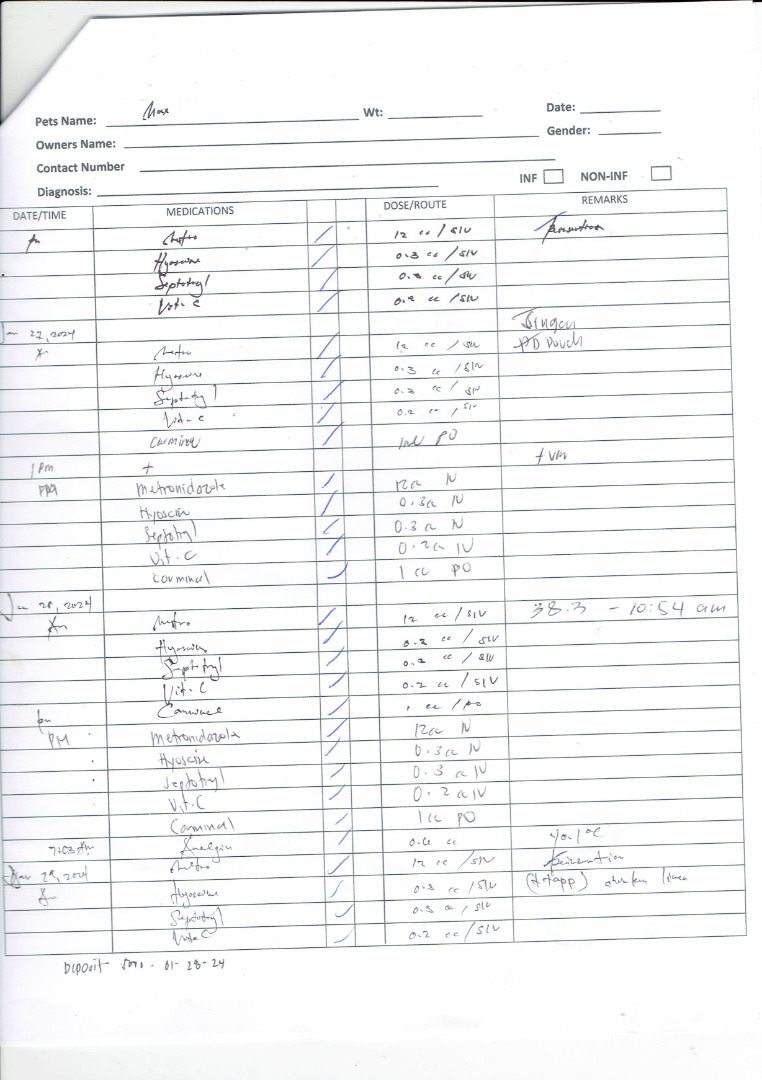 Pets Name: Max Wt: Date:
Owners Name: Gender:
Contact Number
Diagnosis: INF NON-INF
DATE/TIME MEDICATIONS DOSE/ROUTE REMARKS
pm Metro 12 cc / SIV
Hyoscine 0.3 cc / SIV
Septotryl 0.3 cc / SIV
Vit-C 0.2 cc / SIV
Jan 27, 2024
Metro 12 cc / SIV PD Pouch
Hyoscine 0.3 cc / SIV
Septotryl 0.3 cc / SIV
Vit-C 0.2 cc / SIV
Carminal PO
1 PM + + vm
Metronidazole 12cc IV
Hyoscine 0.3cc IV
Septotryl 0.3cc IV
Vit-C 0.2cc IV
Carminal 1 cc PO
Jan 28, 2024 38.3 - 10:54 am
Am Metro 12 cc / SIV
Hyoscine 0.3 cc / SIV
Septotryl 0.3 cc / SIV
Vit-C 0.2 cc / SIV
pm Carminal 1 cc / PO
PM Metronidazole 12cc IV
Hyoscine 0.3cc IV
Septotryl 0.3 cc IV
Vit-C 0.2 cc IV
Carminal 1cc PO
7:03 Am Analgin 0.6 cc 40.1°C
Jan 29, 2024 Metro 12 cc / SIV
Am Hyoscine 0.3 cc / SIV
Septotryl 0.3 cc / SIV
Vit-C 0.2 cc / SIV
Deposit- 01-28-24